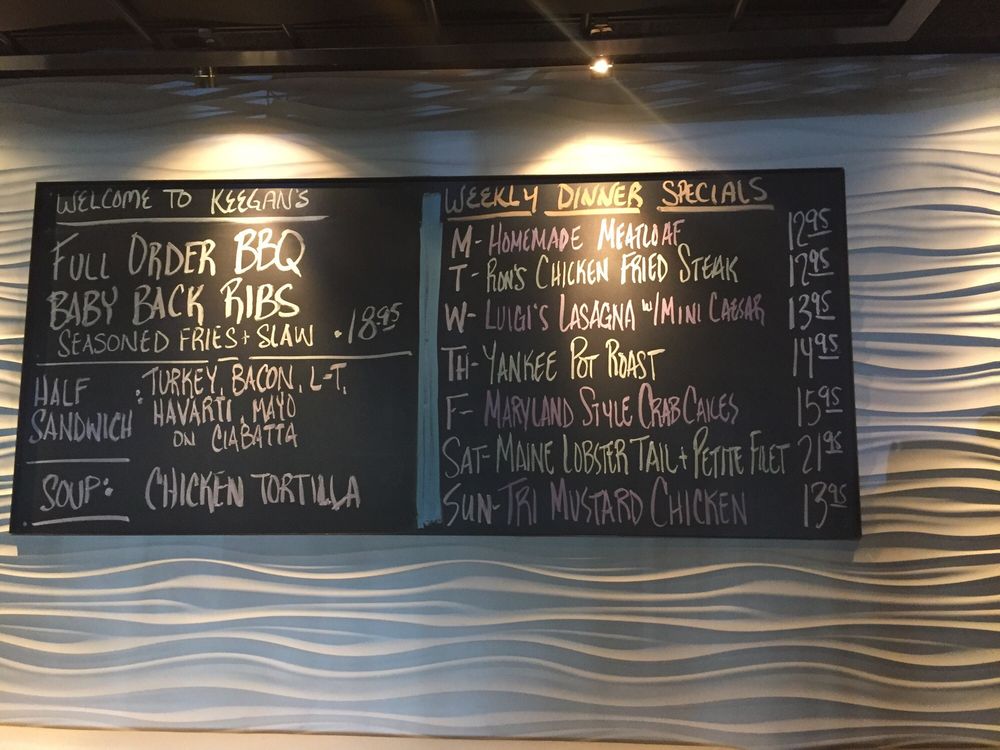 WELCOME TO KEEGAN'S
FULL ORDER BBQ
BABY BACK RIBS
SEASONED FRIES + SLAW • 18.95
HALF SANDWICH : TURKEY, BACON, L-T,
HAVARTI, MAYO
ON CIABATTA
SOUP: CHICKEN TORTILLA
WEEKLY DINNER SPECIALS
M- HOMEMADE MEATLOAF 12.95
T- RON'S CHICKEN FRIED STEAK 12.95
W- LUIGI'S LASAGNA W/ MINI CAESAR 13.95
TH- YANKEE POT ROAST 14.95
F- MARYLAND STYLE CRAB CAKES 15.95
SAT- MAINE LOBSTER TAIL + PETITE FILET 21.95
SUN- TRI MUSTARD CHICKEN 13.95